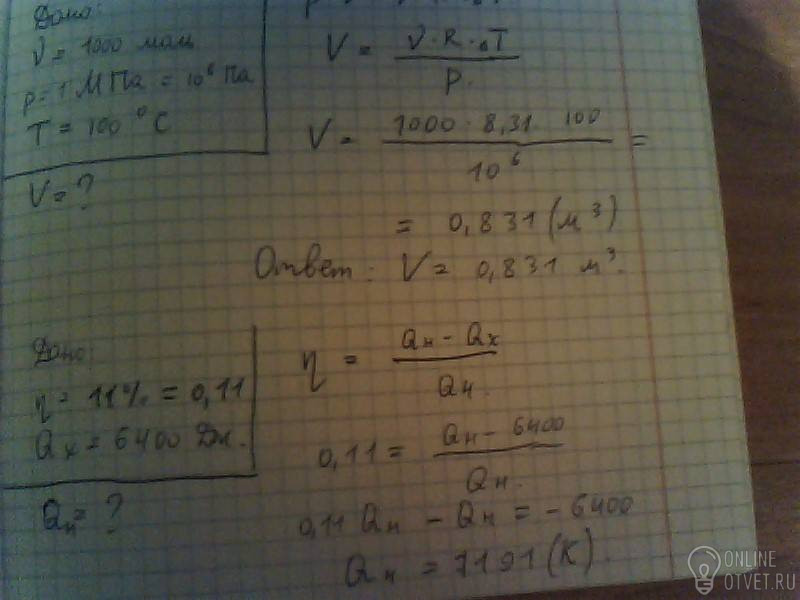 Дано:
ν = 1000 моль
p = 1 МПа = 10⁶ Па
T = 100 °C
V = ?
V = ν · R · ΔT / p.
V = 1000 · 8,31 · 100 / 10⁶ =
= 0,831 (м³)
Ответ: V = 0,831 м³.
Дано:
η = 11% = 0,11
Qх = 6400 Дж.
Qн = ?
η = Qн - Qх / Qн.
0,11 = Qн - 6400 / Qн.
0,11 Qн - Qн = - 6400
Qн = 7191 (К).
ONLINE
OTVET.RU